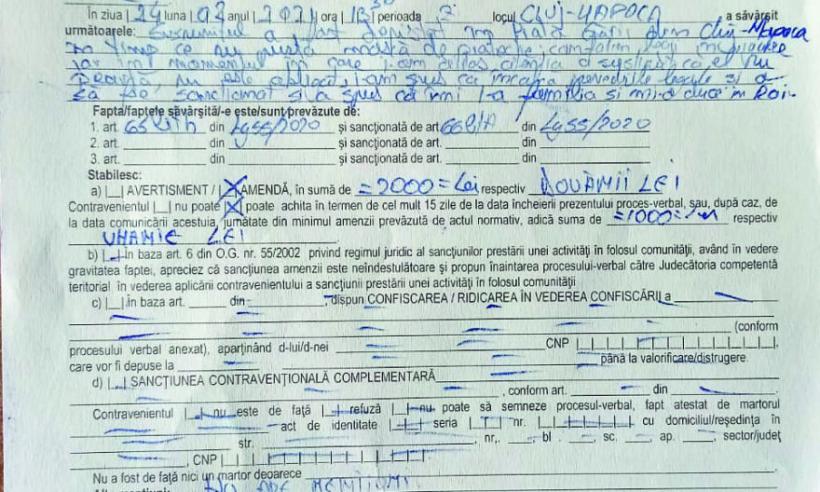 În ziua |24| luna |02| anul |2021| ora |13 30 perioada 2 locul CLUJ-NAPOCA a săvârşit
următoarele: Susnumitul a fost depistat în Piaţa Gării din Cluj-Napoca
în timp ce nu purta mască de protecţie conform legii în vigoare
iar în momentul în care i-am atras atenţia a susţinut că el nu
poartă, nu este obligat, i-am spus că încalcă prevederile legale şi o
să fie sancţionat şi a spus că îmi familia şi mi-o duce în Roi-
Fapta/faptele săvârşită/-e este/sunt prevăzute de:
1. art. 65 lit h din Lg 55/2020 şi sancţionată de art. 66 lit A din Lg 55/2020
2. art. din şi sancţionată de art. din
3. art. din şi sancţionată de art. din
Stabilesc:
a) |_| AVERTISMENT / |X| AMENDĂ, în sumă de =2000= Lei respectiv DOUĂMII LEI
Contravenientul |_| nu poate |X| poate achita în termen de cel mult 15 zile de la data încheierii prezentului proces-verbal, sau, după caz, de
la data comunicării acestuia, jumătate din minimul amenzii prevăzută de actul normativ, adică suma de =1000= respectiv
UNAMIE LEI
b) |_| în baza art. 6 din O.G. nr. 55/2002 privind regimul juridic al sancţiunilor prestării unei activităţi în folosul comunităţii, având în vedere
gravitatea faptei, apreciez că sancţiunea amenzii este neîndestulătoare şi propun înaintarea procesului-verbal către Judecătoria competentă
teritorial în vederea aplicării contravenientului a sancţiunii prestării unei activităţi în folosul comunităţii
c) |_| în baza art. din dispun CONFISCAREA / RIDICAREA ÎN VEDEREA CONFISCĂRII a
(conform
procesului verbal anexat), aparţinând d-lui/d-nei CNP
care vor fi depuse la până la valorificare/distrugere.
d) |_| SANCŢIUNEA CONTRAVENŢIONALĂ COMPLEMENTARĂ
, conform art. din
Contravenientul |_| nu este de faţă |_| refuză |_| nu poate să semneze procesul-verbal, fapt atestat de martorul
act de identitate seria nr. cu domiciliul/reşedinţa în
str. nr. bl. sc. ap. sector/judeţ
, CNP
Nu a fost de faţă nici un martor deoarece
NU ARE MENŢIUNI